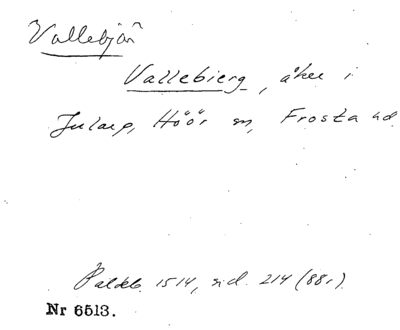 Vallebjär
Vallebierg, åker i
Jularp, Höör sn, Frosta hd
Paldeb. 1514, sid. 214 (88r)
Nr 6513.